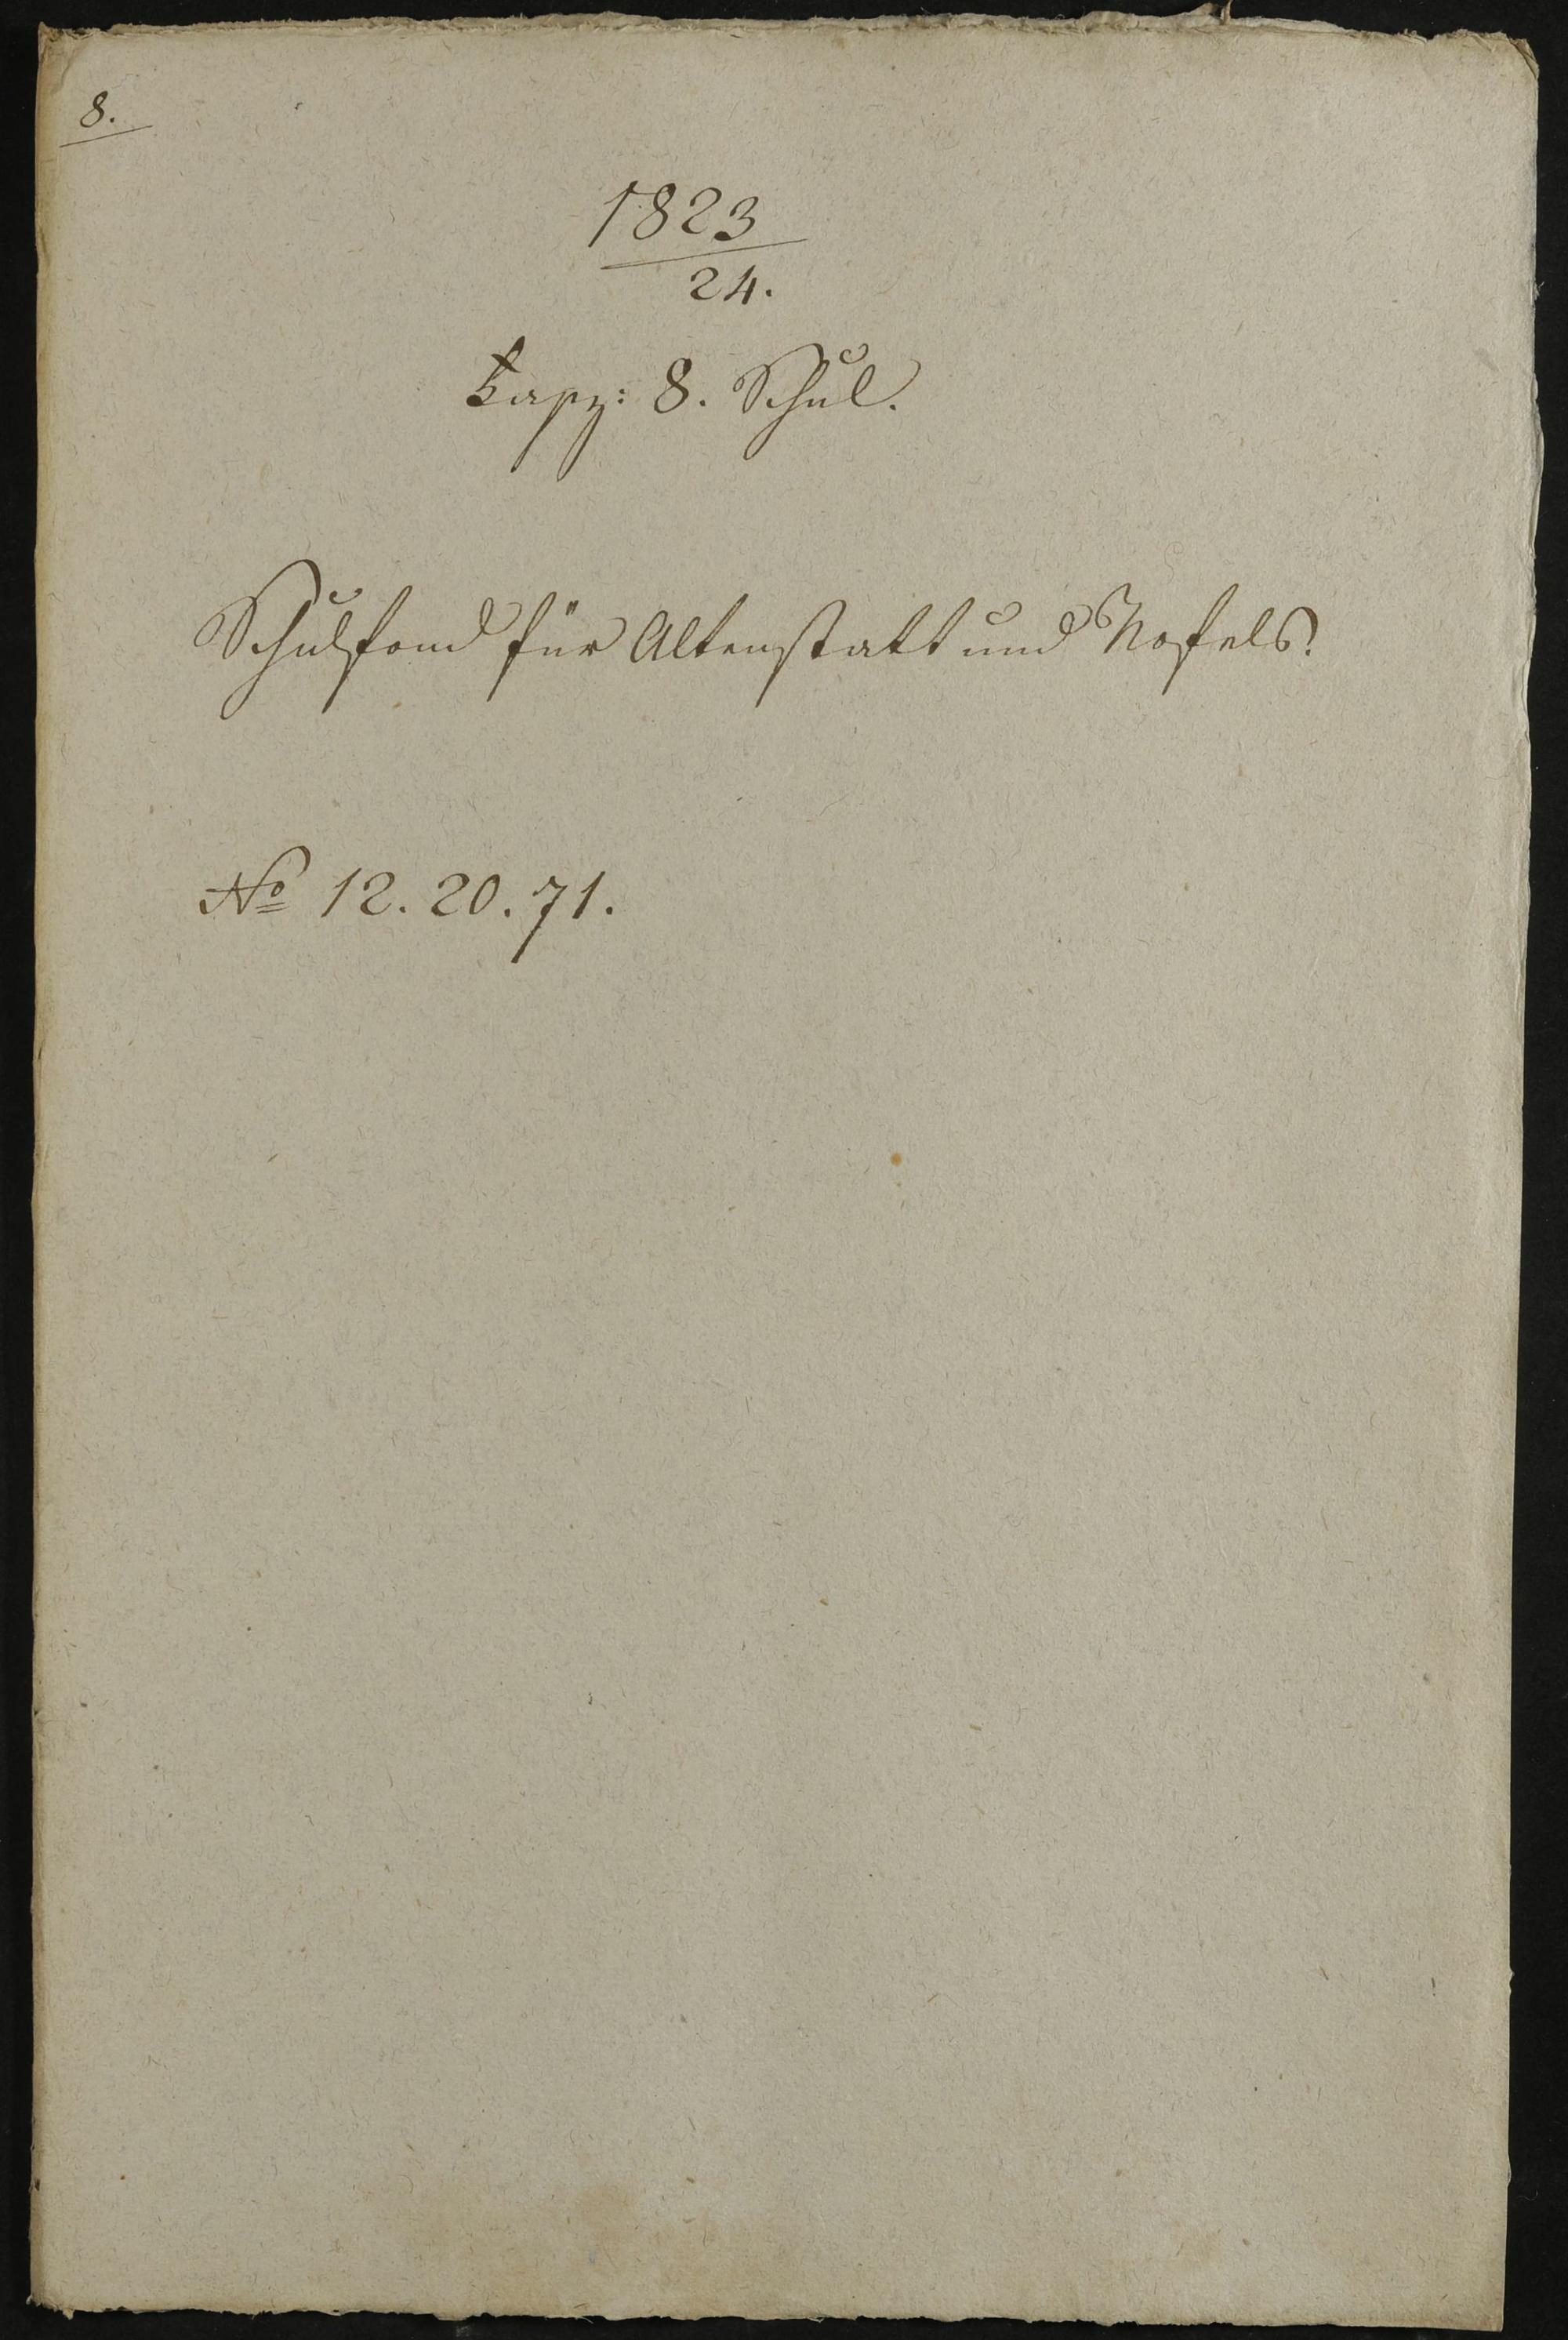 8.
1823
24.
Fasz: 8. Schul.
Schulfond für Altenstatt und Nofels.
No 12. 20. 71.